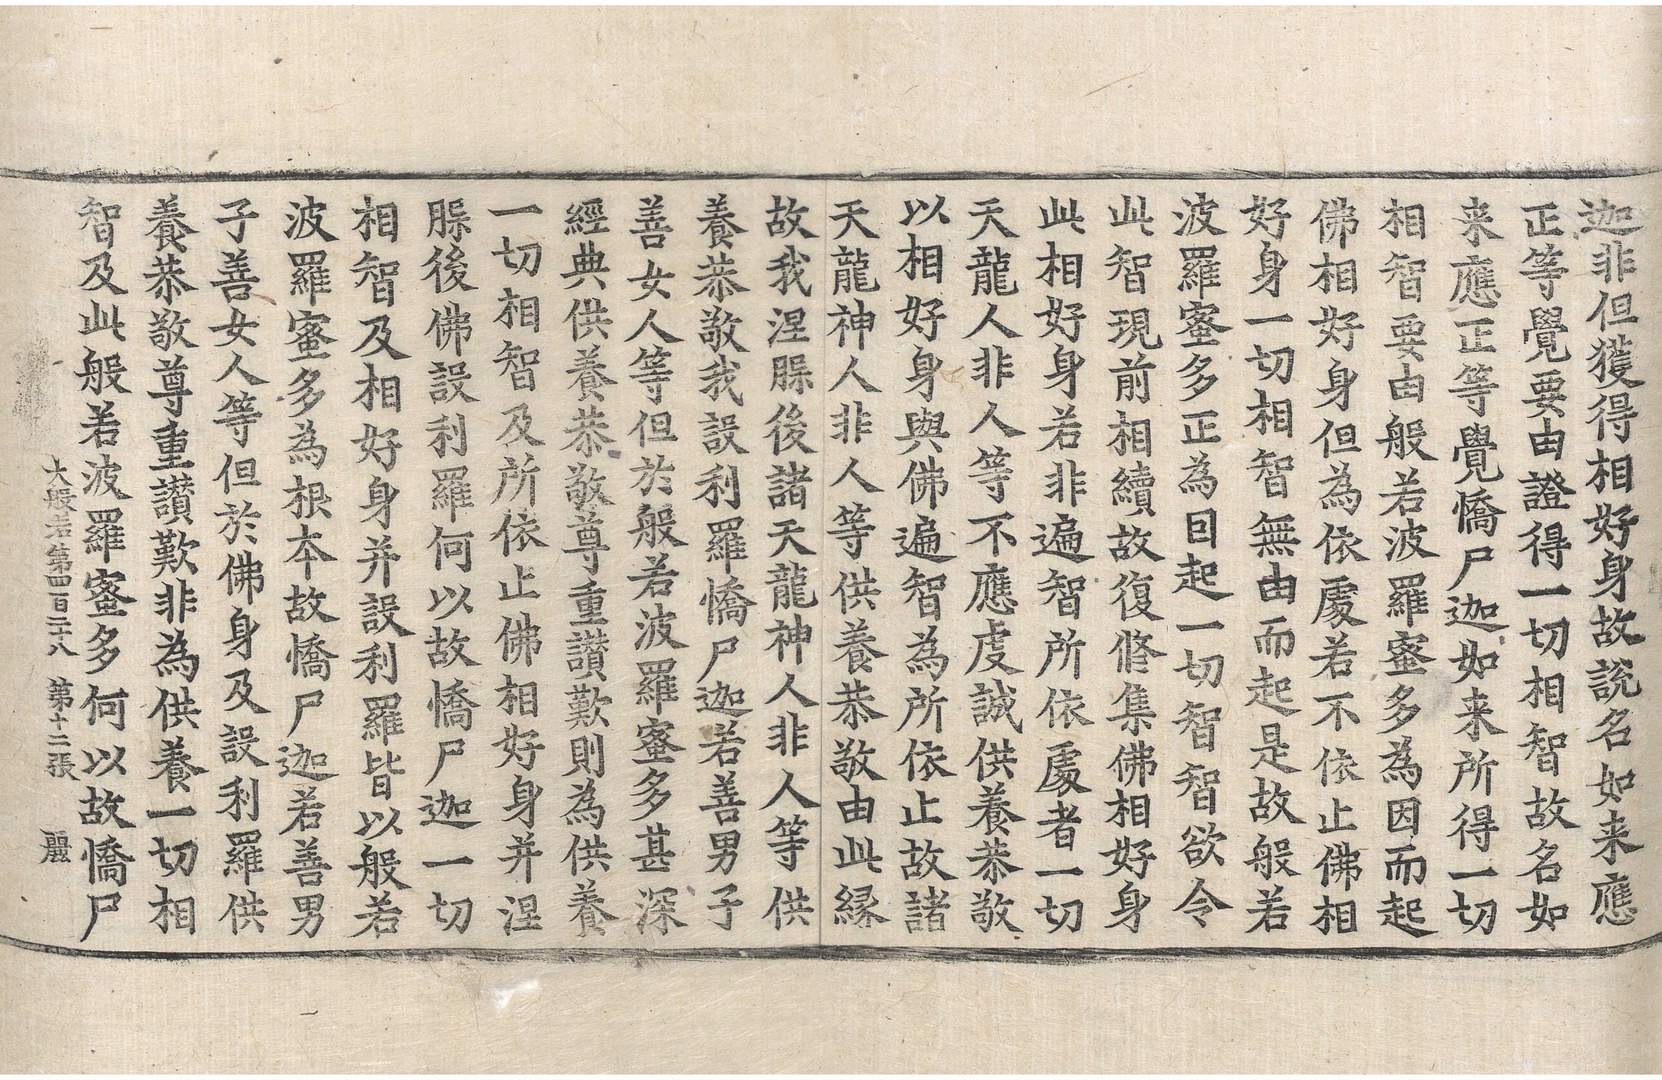 迦非但獲得相好身故說名如来應
正等覺要由證得一切相智故名如
来應正等覺憍尸迦如来所得一切
相智要由般若波羅蜜多為因而起
佛相好身但為依處若不依止佛相
好身一切相智無由而起是故般若
波羅蜜多正為因起一切智智欲令
此智現前相續故復修集佛相好身
此相好身若非遍智所依處者一切
天龍人非人等不應虔誠供養恭敬
以相好身與佛遍智為所依止故諸
天龍神人非人等供養恭敬由此緣
故我涅槃後諸天龍神人非人等供
養恭敬我設利羅憍尸迦若善男子
善女人等但於般若波羅蜜多甚深
經典供養恭敬尊重讚歎則為供養
一切相智及所依止佛相好身并涅
槃後佛設利羅何以故憍尸迦一切
相智及相好身并設利羅皆以般若
波羅蜜多為根本故憍尸迦若善男
子善女人等但於佛身及設利羅供
養恭敬尊重讚歎非為供養一切相
智及此般若波羅蜜多何以故憍尸
大般若第四百二十八 第十二張 麗